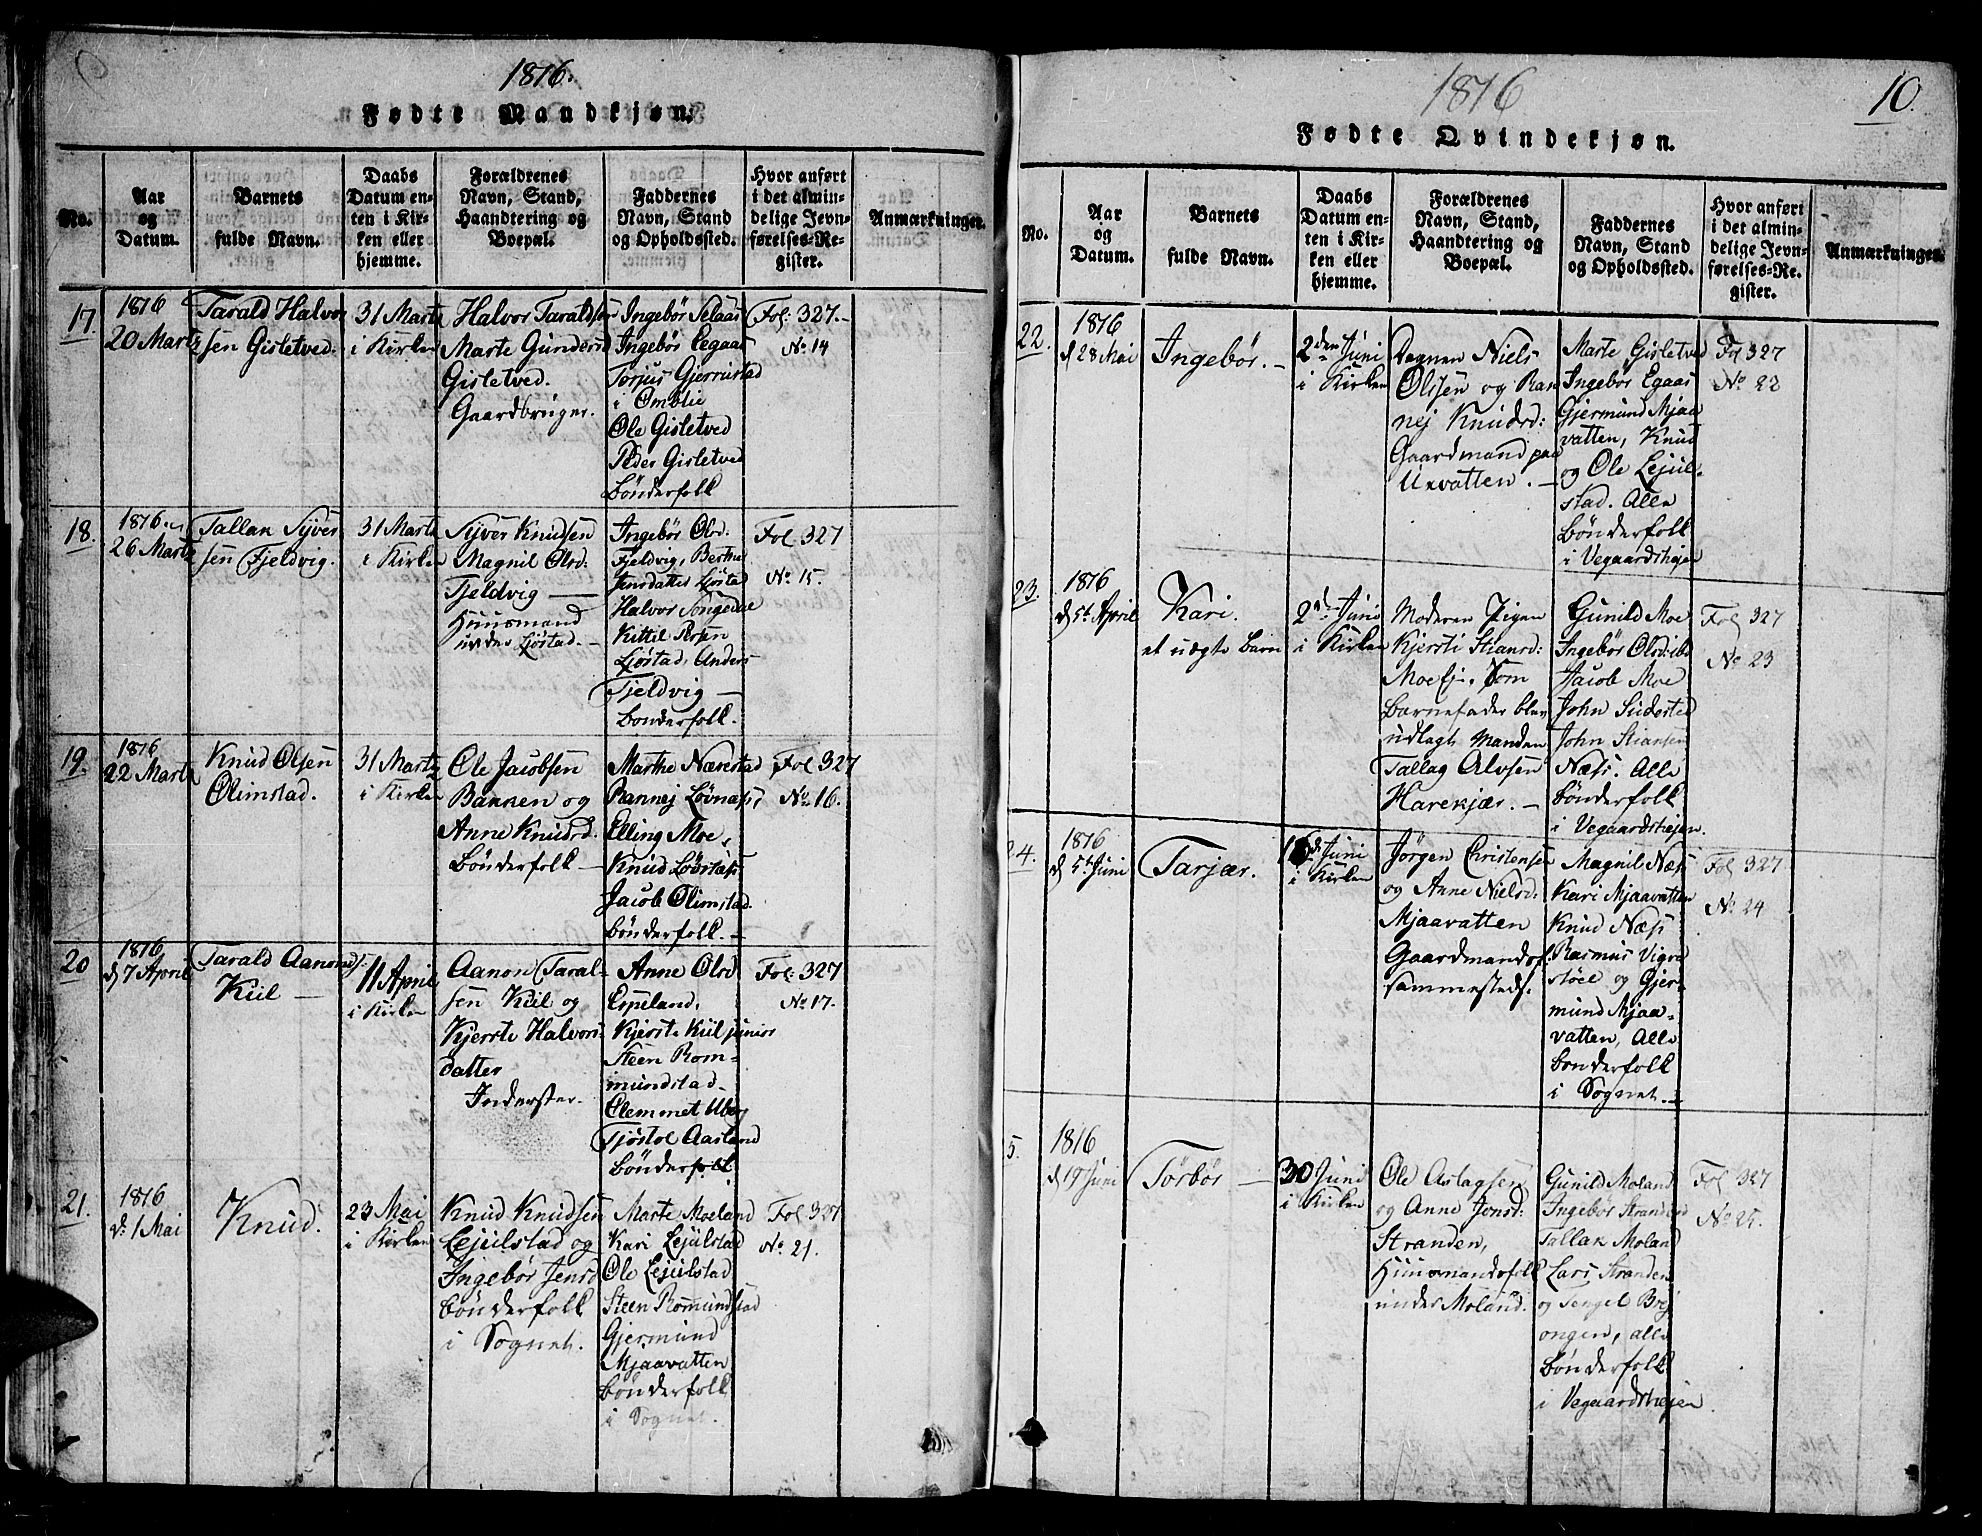 1816.
Fødte Mandkjøn.
No.
Aar
og
Datum.
Barnets
fulde Navn.
Daabs
Datum en-
ten i Kir-
ken eller
hjemme.
Forældrenes
Navn, Stand,
Haandtering og
Boepæl.
Faddernes
Navn, Stand
og Opholdssted.
Hvor anført
i det almin-
delige Jevn-
førelses-Re-
gister.
Anmærkninger.
17
1816
20 Martz
Tarald Halvor
sen Gisletved.
31 Martz
i Kirken
Halvor Taraldsen
Marte Gundersd
Gisletved.
Gaardbruger.
Ingebør Selaas
Ingebør Eegaas
Torjus Gjerrustad
i Omblie
Ole Gisletved
Peder Gisletved
bönderfolk
Fol: 327.-
No 14
18.
1816
26 Martz
Tallak Syver
sen Fjeldvig.
31 Martz
i Kirken
Syver Knudsen
Magnil Olsd:
Fjeldvig —
Huusmand
under Ljøstad. -
Ingebør Olsd.
Fjeldvig, Berthe
Jensdatter Ljøstad
Halvor Songedal
Kittil Persen
Ljøstad, Anders
Fjeldvig —
bonderfolk.
Fol 327
No 15.
19.
1816
22 Martz
Knud Olsen
Olimstad.
31 Martz
i Kirken
Ole Jacobsen
Bakken og
Anne Knudsd.
bönderfolk —
Marthe Nærestad
Rannej Løvnæs,
Elling Moe,
Knud Løvnæs,
Jacob Olimstad.
bönderfolk. -
Fol 327
No 16.
20
1816
d 7 April
Tarald Aanonds:
Kiil —
11 April
i Kirken
Aanon Taral-
sen Kiil og
Kjerste Halvors-
datter
Inderster.
Anne Olsd
Espeland.
Kjerste Kiil junior
Steen Rom-
mundstad.
Clemmet Uberg
Tjøstol Aasland
bönderfolk
Fol: 327
No 17.
21.
1816
d. 1 Mai
Knud.
23 Mai
i Kirken
Knud Knudsen
Lejulstad og
Ingebør Jensd
bönderfolk
i Sognet.
Marte Moeland
Kari Lejulstad
Ole Lejulstad
Steen Rommundstad
Gjermund
Mjaavatten
bönderfolk
i Sognet.
Fol 327
No 21.
1816
10.
Fødte Qvindekjøn.
No.
Aar
og
Datum.
Barnets
fulde Navn.
Daabs
Datum en-
ten i Kir-
ken eller
hjemme.
Forældrenes
Navn, Stand,
Haandtering og
Boepæl.
Faddernes
Navn, Stand
og Opholdssted.
Hvor anført
i det almin-
delige Jevn-
førelses-Re-
gister.
Anmærkninger.
22.
1816
d 28 Mai
Ingebør. -
2den Juni
i Kirken
Niels
Olsen og Ran
nej Knudsd:
Gaardmand paa
Uxvatten. -
Marte Gisletved
Ingebør Egaas
Gjermund Mjaa
vatten, Knud
og Ole Lejul-
stad. Alle
bönderfolk
i Vegaardshejen
Fol 327
No 22
23.
1816
d 5t April
Kari.
et uægte barn
2den Juni
i Kirken
Moderen Pigen
Kjersti Stiansd:
Moe. Som
barnefader blev
udlagt Manden
Tallag Alvsen
Harekjær. -
Gunild Moe
Ingebør Olsd: ibd
Jacob Moe
John Sudostad
John Stiansen
Næss. Alle
bönderfolk
i Vegaardshejen.
Fol 327
No 23
24.
1816
d 5t Juni
Tarjær.
16d Juni
i Kirken
Jørgen Christensen
og Anne Nielsd:
Mjaavatten
Gaardmandsf.
sammesteds.
Magnil Næss
Kari Mjaavatten
Knud Næss
Rasmus Vigre
støel og Gjer-
mund Mjaa-
vatten, Alle
bonderfolk
i Sognet. -
Fol 327
No 24
5.
1816
d 19 Juni
Törbør —
30 Juni
i Kirken
Ole Aslagsen
og Anne Jensd:
Stranden,
Huusmandsfolk
under Moland.
Gunild Moland
Ingebør Stranden
Tallak Moland
Lars Stranden
og Tengel Brej
ongen, alle
bönderfolk
i Vegaardshejen.
Fol 327
No 25.